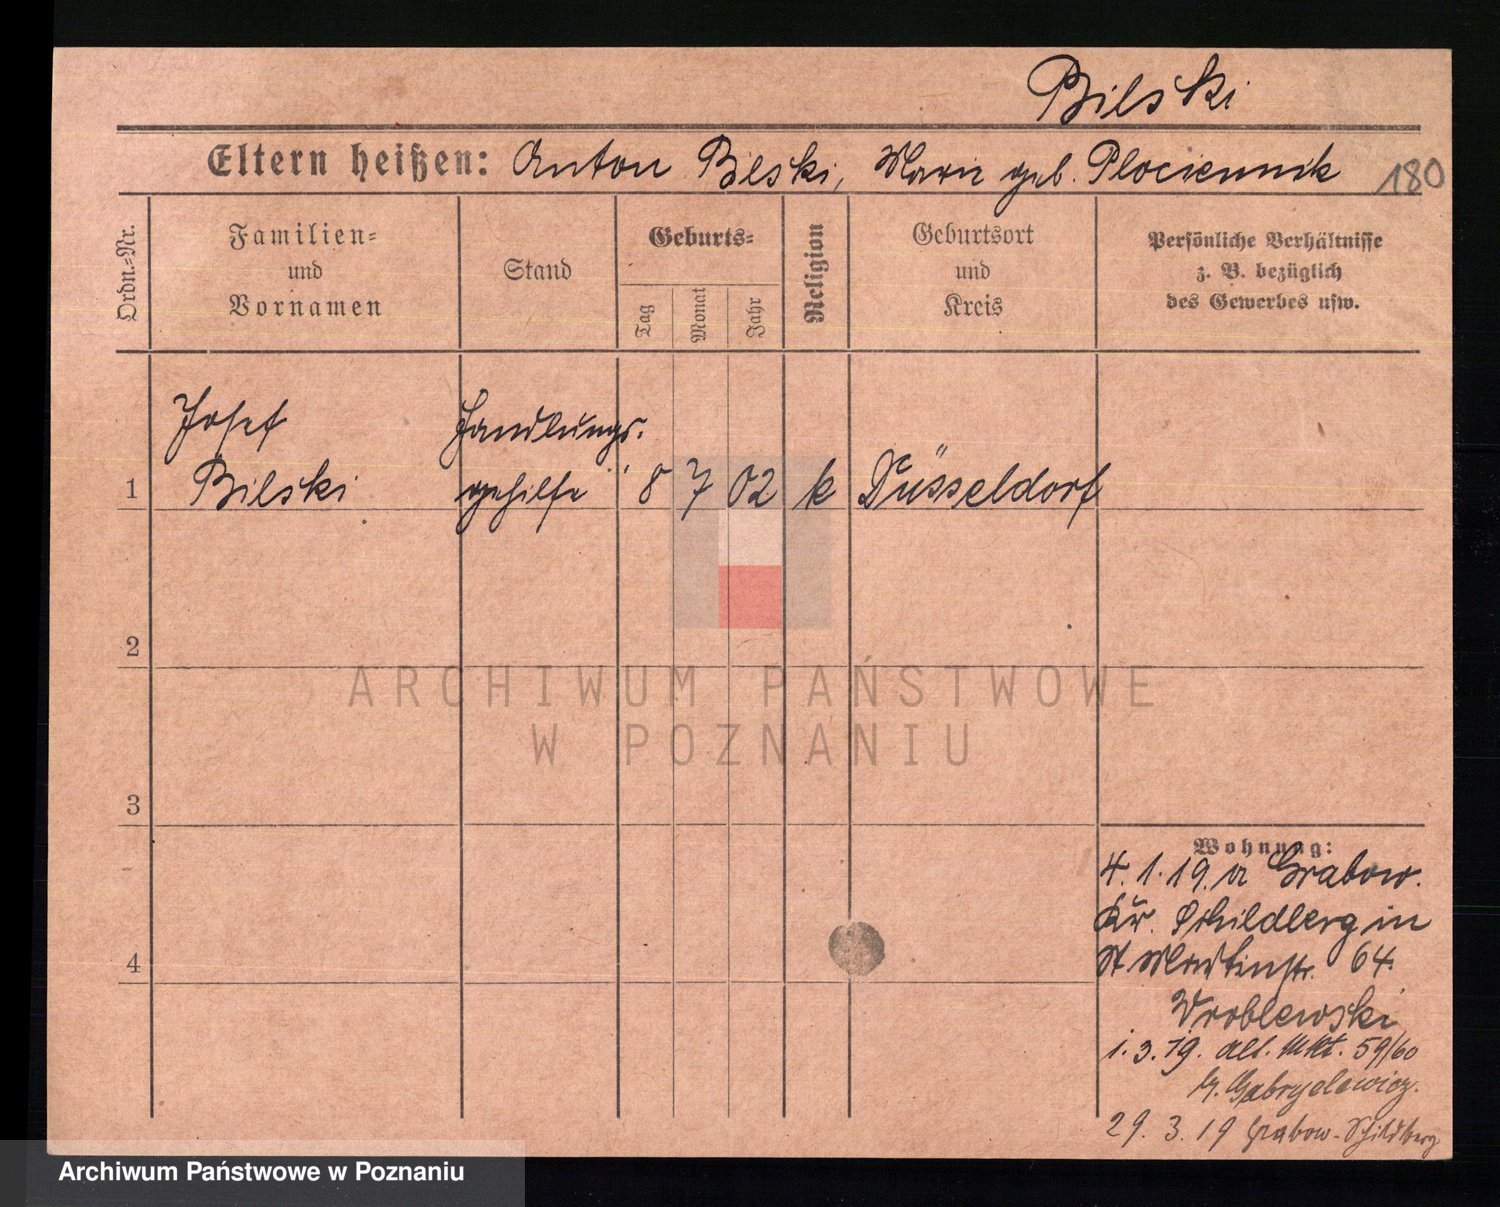 Bilski
Eltern heißen: Anton Bilski, Marie geb. Plociennik 180
Ordn.-Nr.
Familien-
und
Vornamen
Stand
Geburts-
Tag
Monat
Jahr
Religion
Geburtsort
und
Kreis
Persönliche Verhältnisse
z. B. bezüglich
des Gewerbes usw.
Josef Handlungs.
1 Bilski gehilfe 8 7 02 k Düsseldorf
2
ARCHIWUM PAŃSTWOWE
W POZNANIU
3
Wohnung:
4. 1. 19. a Grabow.
Kr. Schildberg in
St Martinstr. 64.
4
Wroblewski
1. 3. 19. alt. Mkt. 59/60
Gabryelewicz.
29. 3. 19 Grabow-Schildberg
Archiwum Państwowe w Poznaniu